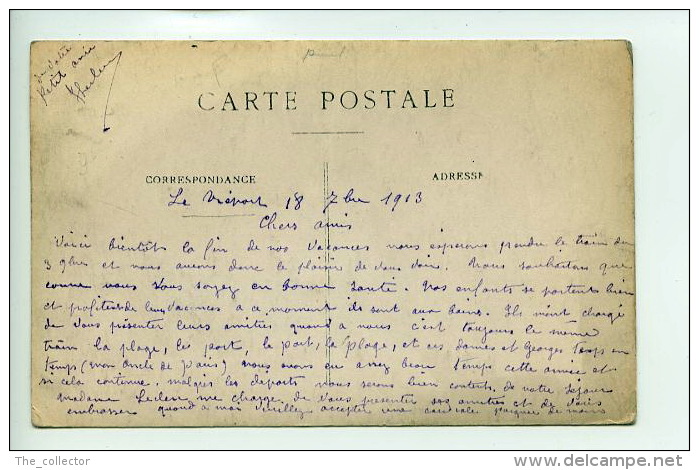 de votre
petit ami
Leclerc
CARTE POSTALE
CORRESPONDANCE
ADRESSE
Le Tréport 18 7bre 1913
Chers amis
Voici bientôt la fin de nos vacances nous esperons prendre le train du
3 et nous aurons donc le plaisir de vous voir. Nous souhaitons que
comme nous vous soyez en bonne santé. Nos enfants se portent bien
et profitent de leurs vacances a ce moment ils sont aux bains. Ils m'ont chargé
de vous présenter leurs amitiés quand a nous c'est toujours le même
train la plage, le port, le port, la plage, et ces dames et Georges
temps (mon oncle de Paris) nous avons eu assez beau temps cette année et
si cela continue. malgrés les departs nous serons bien contents de notre séjour
madame Leclerc me charge de vous présenter ses amitiés et de vous
embrasser quand a moi veuillez accepter une cordiale poignée de mains
The_collector
www.delcampe.net